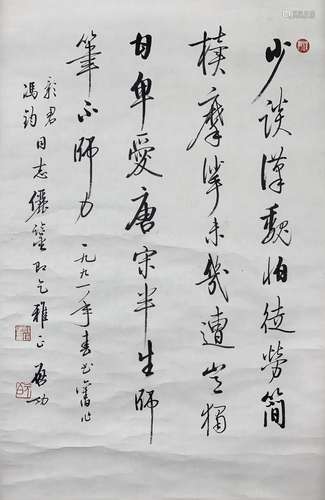 少談漢魏怕徒勞簡
牘摩挲未幾遭豈獨
甘卑愛唐宋半生師
筆不師刀 一九九一年春書舊作
君
馮鈞同志儷鑒即乞雅正 啟功